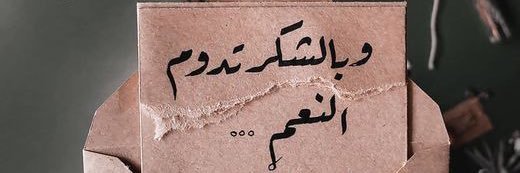 وبالشكر تدوم
النعم ...